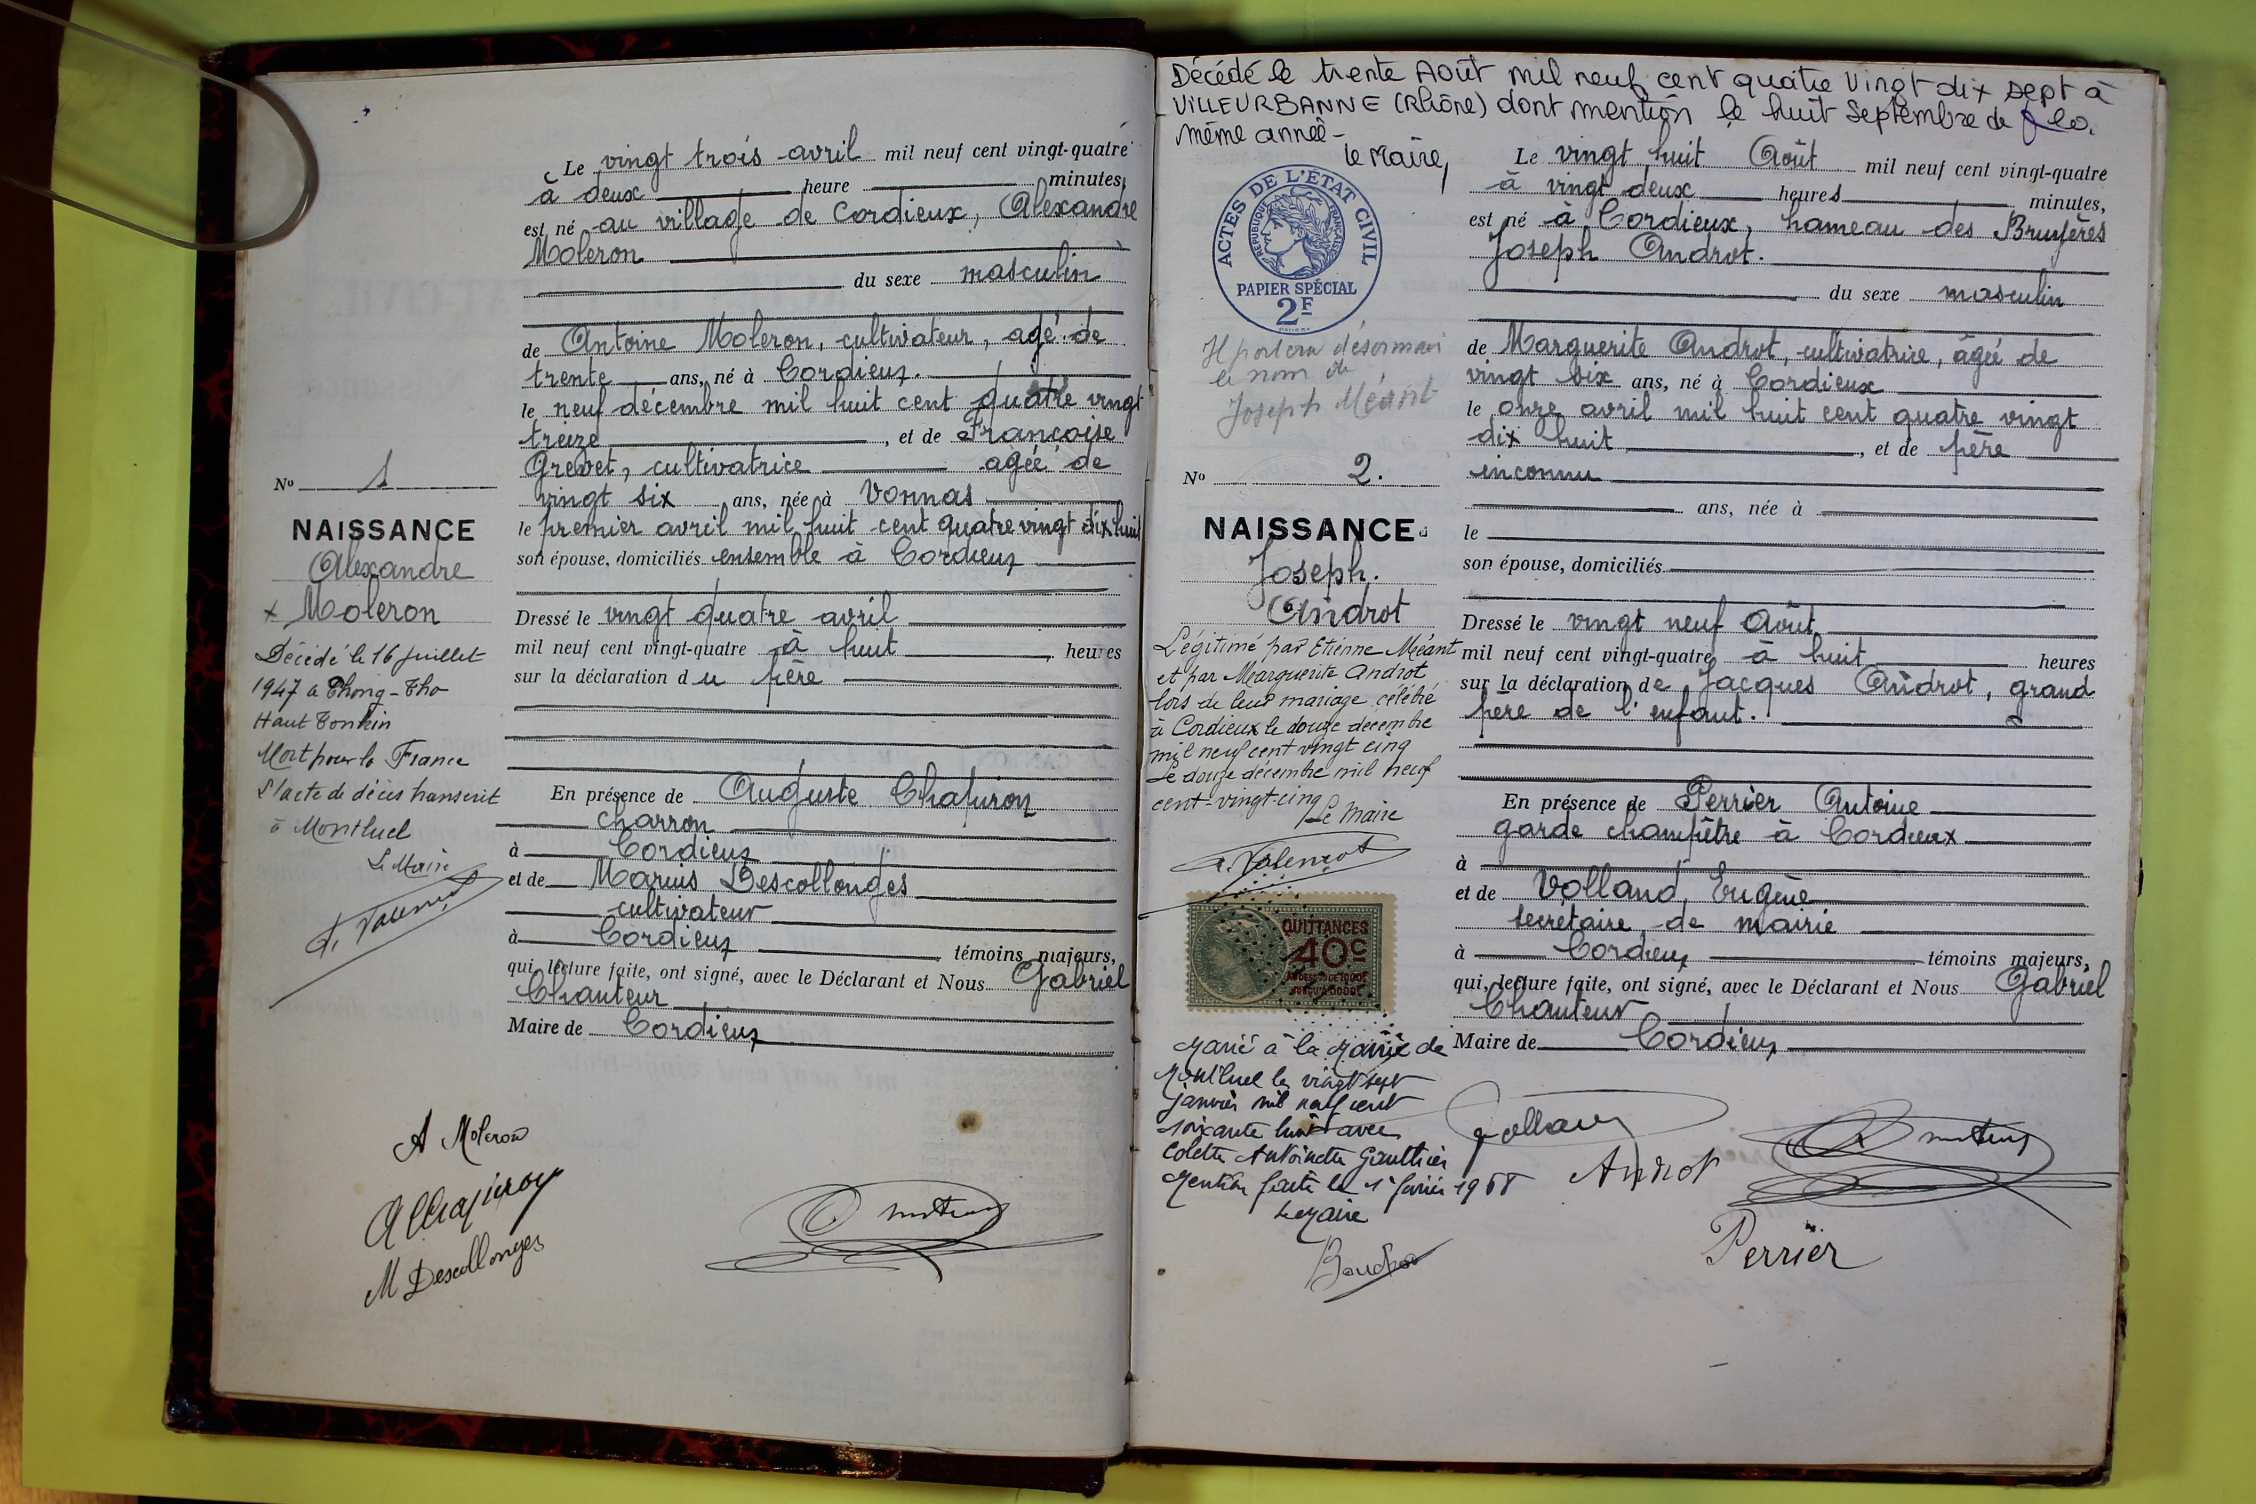 Le vingt trois avril mil neuf cent vingt-quatre
à deux heure minutes,
est né au village de Cordieux, Alexandre
Moleron
du sexe masculin
de Antoine Moleron, cultivateur, agé de
trente ans, né à Cordieux.
le neuf décembre mil huit cent quatre vingt
treize, et de Françoise
Grevet, cultivatrice agée de
vingt six ans, née à Vonnas
le premier avril mil huit cent quatre vingt dix huit
son épouse, domiciliés ensemble à Cordieux
Dressé le vingt quatre avril
mil neuf cent vingt-quatre à huit heures
sur la déclaration du père
En présence de Auguste Chafuron
charron
à Cordieux
et de Marius Descollonges
cultivateur
à Cordieux témoins majeurs,
qui, lecture faite, ont signé, avec le Déclarant et Nous Gabriel
Chanteur
Maire de Cordieux
No 1
NAISSANCE
Alexandre
x Moleron
Décédé le 16 juillet
1947 à Phong-Tho
Haut Tonkin
Mort pour la France
L'acte de décès transcrit
à Montluel
Le Maire
A Moleron
M Descollonges
Décédé le trente Août mil neuf cent quatre Vingt dix sept à
VILLEURBANNE (Rhône) dont mention le huit Septembre de la
même année -
le Maire,
ACTES DE L'ÉTAT CIVIL
RÉPUBLIQUE FRANÇAISE
PAPIER SPÉCIAL
2F
Il portera désormais
le nom de
Joseph Méant
No 2.
NAISSANCE
Joseph.
Androt
Légitimé par Etienne Méant
et par Marguerite Androt
lors de leur mariage célébré
à Cordieux le douze décembre
mil neuf cent vingt cinq
Le douze décembre mil neuf
cent-vingt-cinq
Le Maire
QUITTANCES
40c
Marié à la Mairie de
Montluel le vingt sept
janvier mil neuf cent
soixante huit avec
Colette Antoinette Gauthier
Mention faite le 1er février 1968
Le Maire
Le vingt huit Août mil neuf cent vingt-quatre
à vingt deux heures minutes,
est né à Cordieux, hameau des Bruyères
Joseph Androt.
du sexe masculin
de Marguerite Androt, cultivatrice, âgée de
vingt six ans, né à Cordieux
le onze avril mil huit cent quatre vingt
dix huit, et de père
inconnu
ans, née à
le
son épouse, domiciliés
Dressé le vingt neuf Août
mil neuf cent vingt-quatre à huit heures
sur la déclaration de Jacques Androt, grand
père de l'enfant.
En présence de Perrier Antoine
garde champêtre à Cordieux
à
et de Volland Eugène
secrétaire de mairie
à Cordieux témoins majeurs,
qui, lecture faite, ont signé, avec le Déclarant et Nous Gabriel
Chanteur
Maire de Cordieux
Androt
Perrier